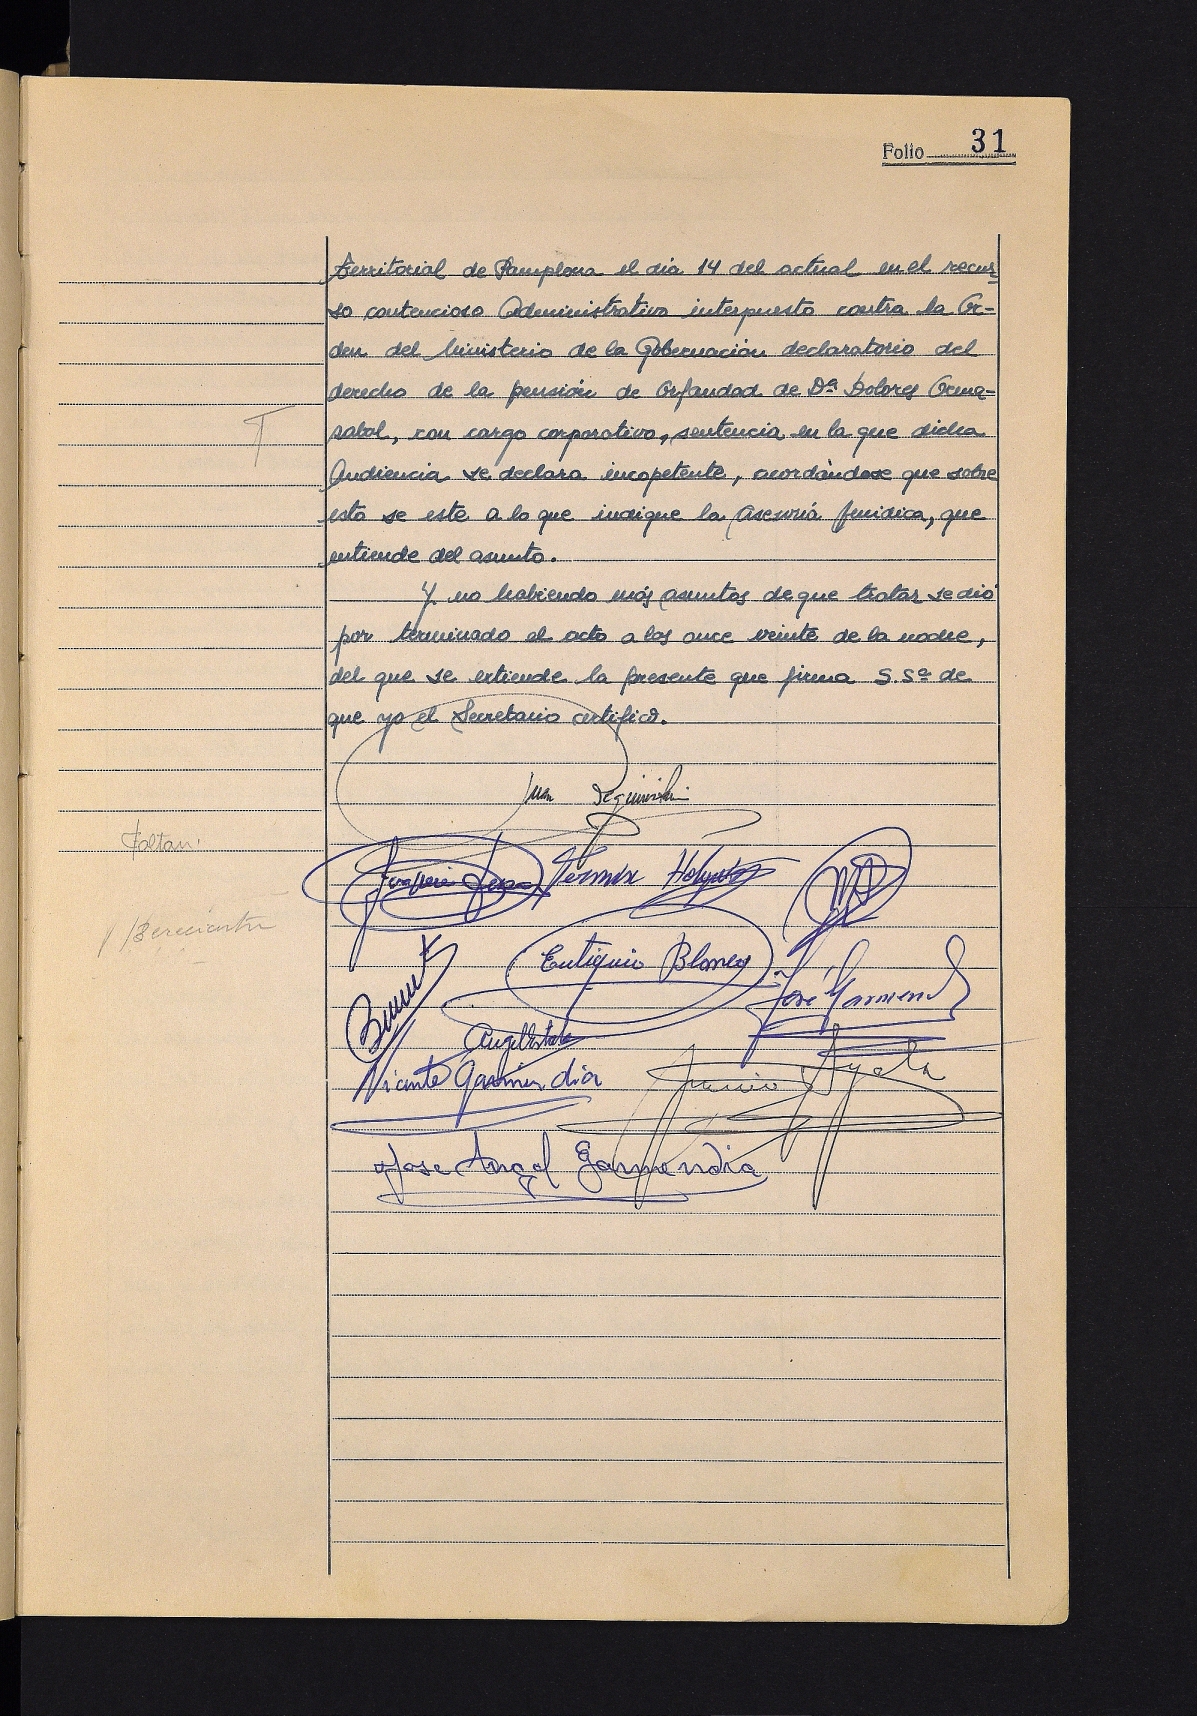 Folio 31
territorial de Pamplona el dia 14 del actual en el recur-
so contencioso Administrativo interpuesto contra la Or-
den del Ministerio de la Gobernación declaratorio del
derecho de la pensión de Orfandad de Dª Dolores Orma-
zabal, con cargo corporativo, sentencia en la que dicha
Audiencia se declara incopetente, acordándose que sobre
esto se esté a lo que indique la Asesoría Juridica, que
entiende del asunto.
Y no habiendo más asuntos de que tratar se dió
por terminado el acto a las once veinte de la noche,
del que se extiende la presente que firma S. Sª de
que yo el Secretario certifico.
Juan
Faltan:
Fermin
Eutiquio Blanco
José
Vicente
Ayala
Jose Angel Garmendia